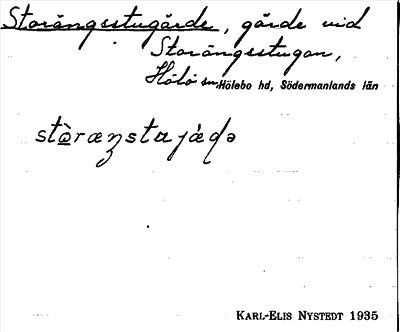 Storängsstugärde, gärde vid
Storängsstugan,
Hölö sn, Hölebo hd, Södermanlands län
stò̱ræŋstɯjǻdə
KARL-ELIS NYSTEDT 1935